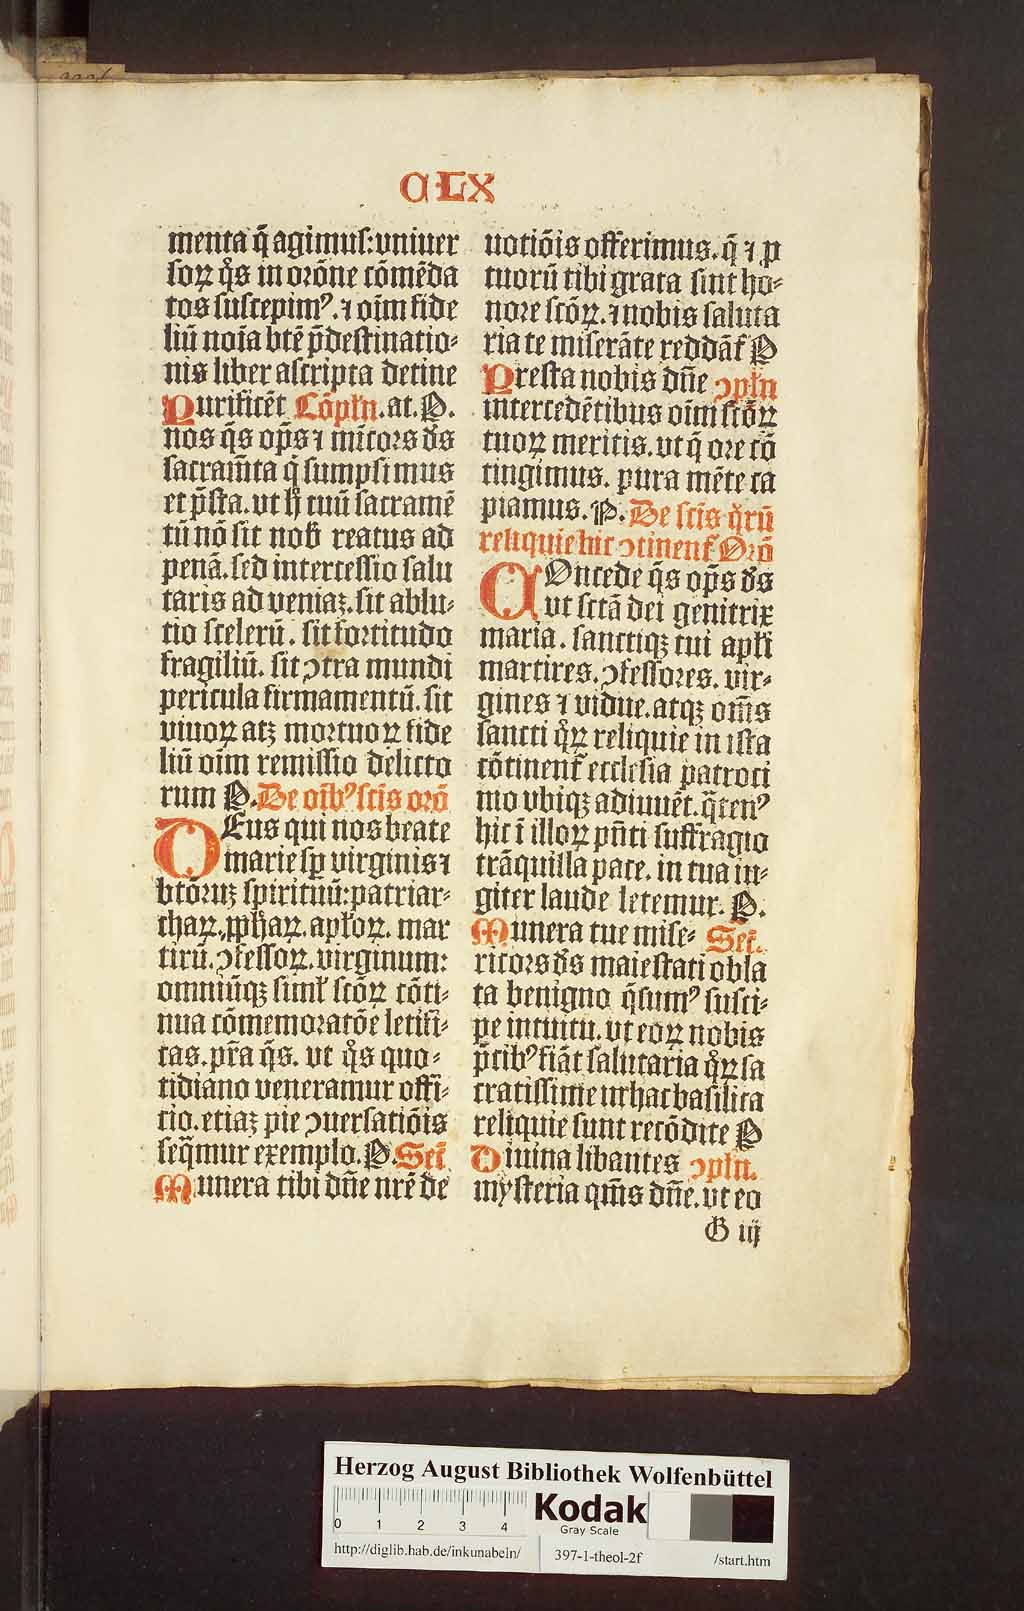 CLX
menta q̄ agimus: vniuer
soꝝ qͦs in orōne cōmēda
tos suscepimꝰ. ⁊ oīm fide
liū noīa btē p̄destinatio-
nis liber ascripta detine
Purificēt Cōpłn. at. P.
nos q̄s op̄s ⁊ mīcors ds̄
sacram̄ta q̄ sumpsimus
et p̄sta. vt h̄ tuū sacramē
tū nō sit nob̄ reatus ad
penā. sed intercessio salu
taris ad veniaꝫ. sit ablu-
tio scelerū. sit fortitudo
fragiliū. sit ↄtra mundi
pericula firmamentū. sit
viuoꝝ atꝫ mortuoꝝ fide
liū oīm remissio delicto
rum P. De oībꝰ scīs orō
DEus qui nos beate
marie sꝑ virginis ⁊
btōruꝫ spirituū: patriar-
chaꝝ, ꝓphaꝝ. apłoꝝ. mar
tirū. ↄfessoꝝ. virginum:
omniūqꝫ simł scōꝝ cōti-
nua cōmemoratōe letifi-
cas. pr̄a q̄s. vt qͦs quo-
tidiano veneramur offi-
cio. etiaꝫ pie ↄuersatiōis
seq̄mur exemplo. P. Secr̄
Munera tibi dn̄e nr̄e de
uotiōis offerimus. q̄ ⁊ ꝓ
tuorū tibi grata sint ho-
nore scōꝝ. ⁊ nobis saluta
ria te miserāte reddāt̄ P
Presta nobis dn̄e ↄpłn
intercedētibus oīm scōꝝ
tuoꝝ meritis. vt q̄ ore cō
tingimus. pura mēte ca
piamus. P. De scīs qͦrū
reliquie hic ↄtinent̄ Orō
COncede q̄s op̄s ds̄
vt sctā dei genitrix
maria. sanctiqꝫ tui apłi
martires. ↄfessores. vir-
gines ⁊ vidue. atqꝫ om̄s
sancti qͦꝝ reliquie in ista
cōtinent̄ ecclesia patroci
nio vbiqꝫ adiuuēt. q̄tenꝰ
hic ī illoꝝ pn̄ti suffragio
trāquilla pace. in tua iu-
giter laude letemur. P.
Munera tue mise- Secr̄.
ricors ds̄ maiestati obla
ta benigno q̄sumꝰ susci-
pe intuitu. vt eoꝝ nobis
p̄cibꝰ fiāt salutaria qͦꝝ sa
cratissime in hac basilica
reliquie sunt recōdite P
Diuina libantes ↄpłn.
mysteria qm̄s dn̄e. vt eo
G iij
Herzog August Bibliothek Wolfenbüttel
0 1 2 3 4
Kodak
Gray Scale
http://diglib.hab.de/inkunabeln/
397-1-theol-2f
/start.htm